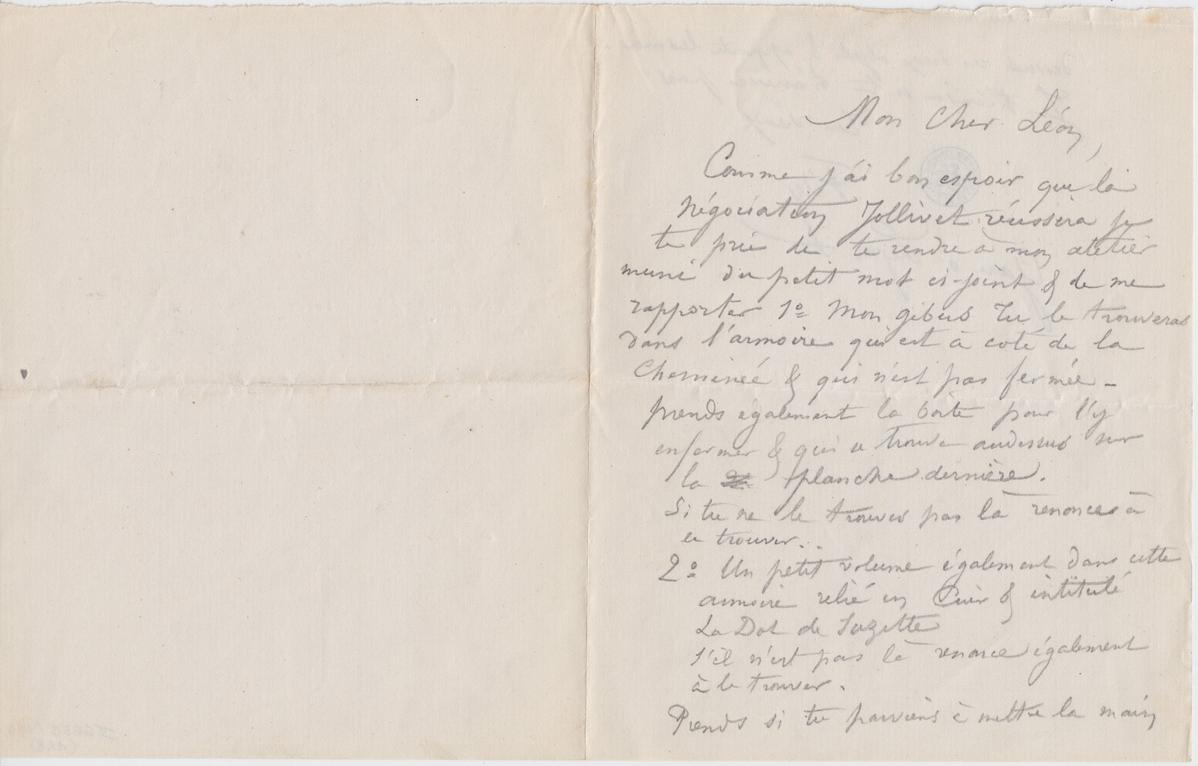 Mon Cher Léon,
Comme j'ai bon espoir que la
négociation Jollivet réussira je
te prie de te rendre à mon atelier
muni du petit mot ci-joint & de me
rapporter 1º Mon gibus Tu le trouveras
dans l'armoire qui est à coté de la
Cheminée & qui n'est pas fermée –
prends également la boite pour l'y
enfermer & qui se trouve audessus sur
la planche dernière.
Si tu ne le trouves pas là renonces à
le trouver..
2º Un petit volume également dans cette
armoire relié en Cuir & intitulé
La Dot de Suzette
S'il n'est pas là renonce également
à le trouver.
Prends si tu parviens à mettre la main